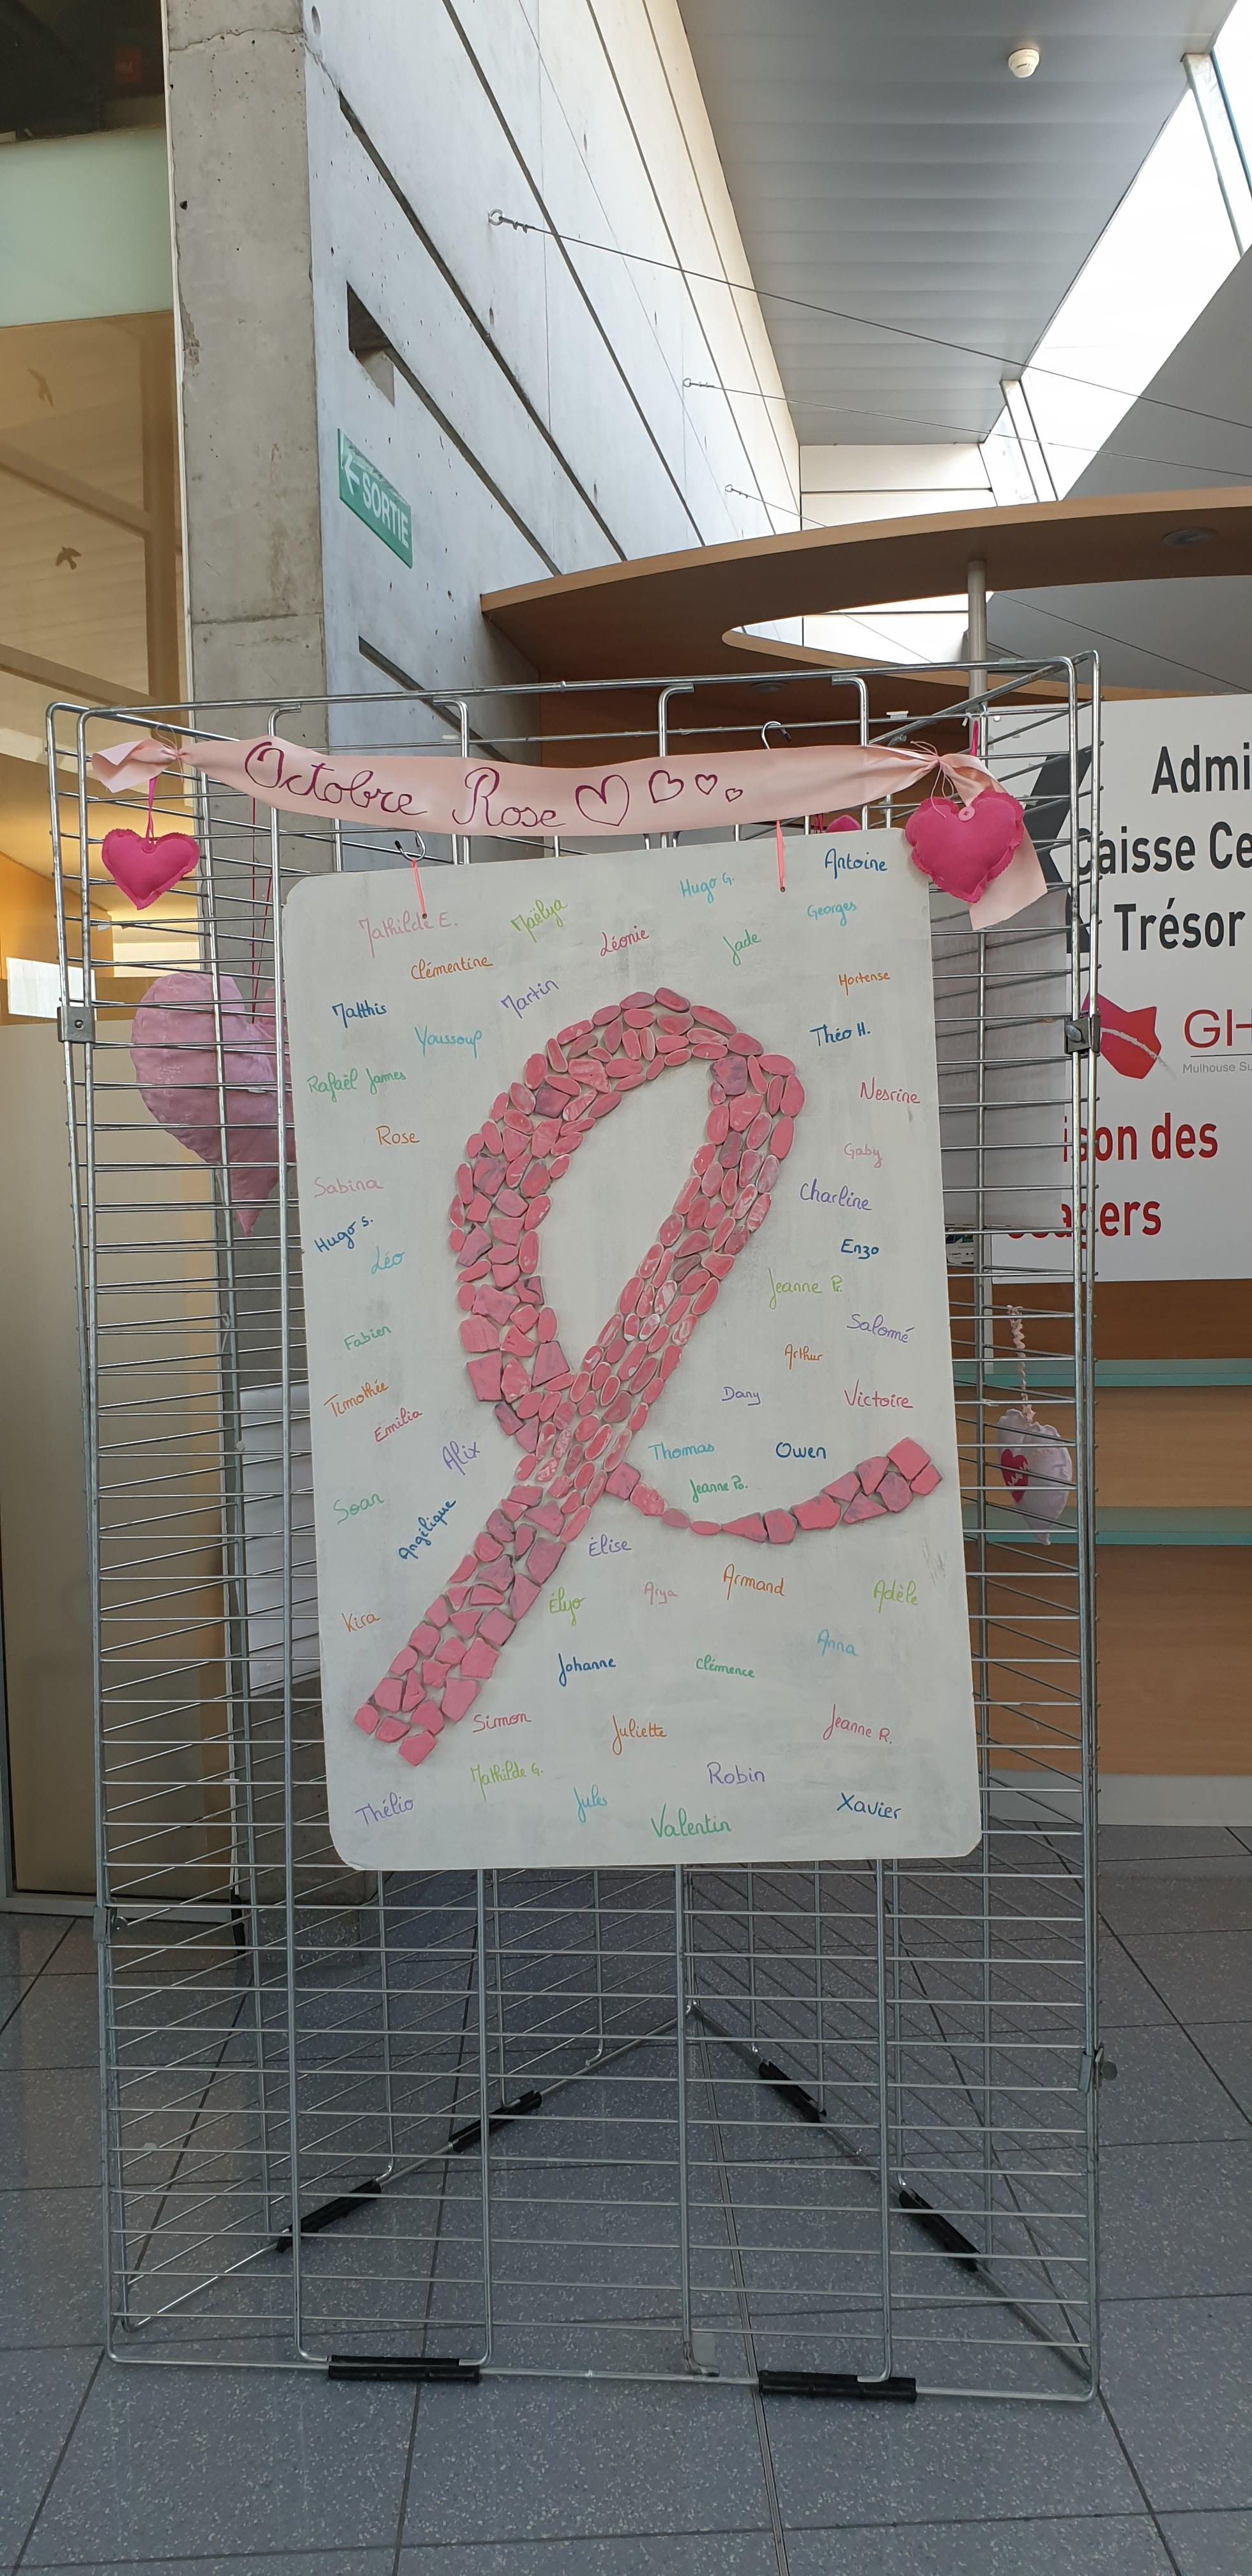 SORTIE
Octobre Rose
Antoine
Hugo G.
Mathilde E.
Maëlya
Georges
Léonie
Jade
Clémentine
Hortense
Martin
Matthis
Théo H.
Youssouf
Rafaël James
Nesrine
Rose
Gaby
Sabina
Charline
Hugo S.
Enzo
Léo
Jeanne P.
Salomé
Fabien
Arthur
Timothée
Dany
Victoire
Emilia
Alix
Thomas
Owen
Jeanne Po.
Soan
Angélique
Élise
Armand
Arya
Adèle
Élyo
Kira
Anna
Johanne
Clémence
Simon
Juliette
Jeanne R.
Mathilde G.
Robin
Jules
Thélio
Xavier
Valentin
Admi
Caisse Ce
Trésor
GH
Mulhouse Su
ison des
agers